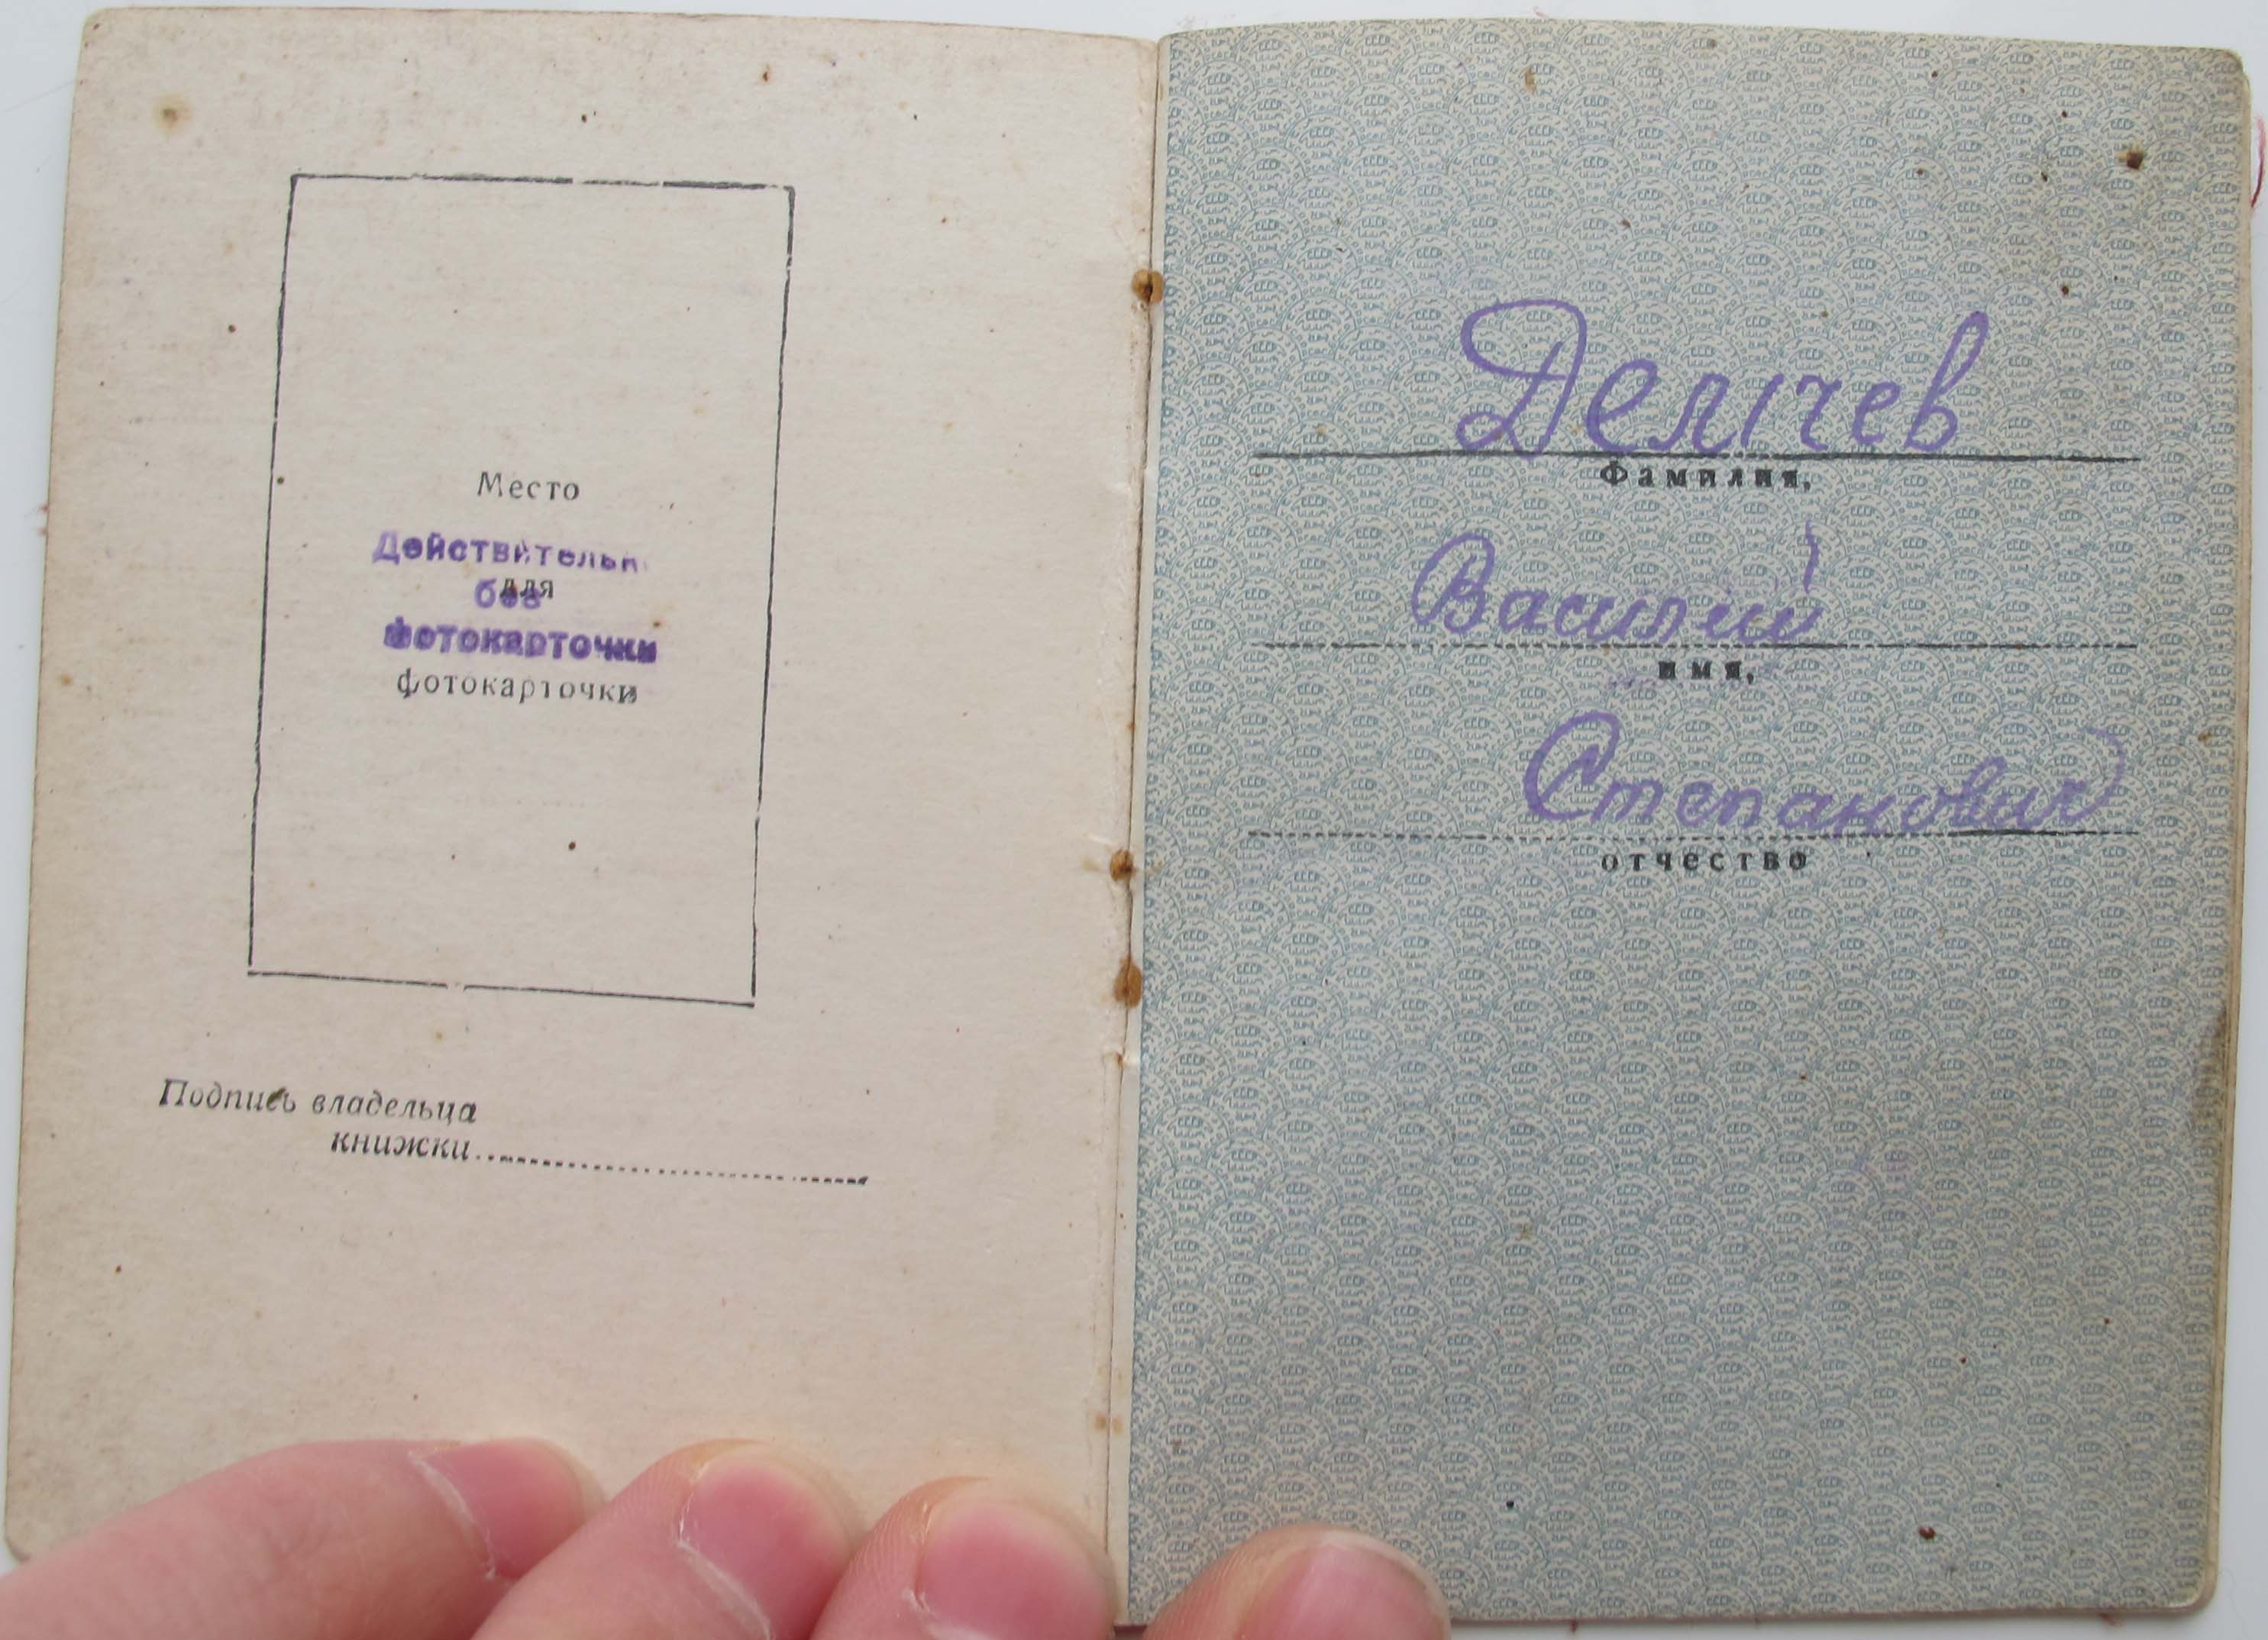 Место
Действительн
без
для
фотокарточки
фотокарточки
Подпись владельца
книжки
Делічев
Фамилия,
Василий
имя,
Степанович
отчество